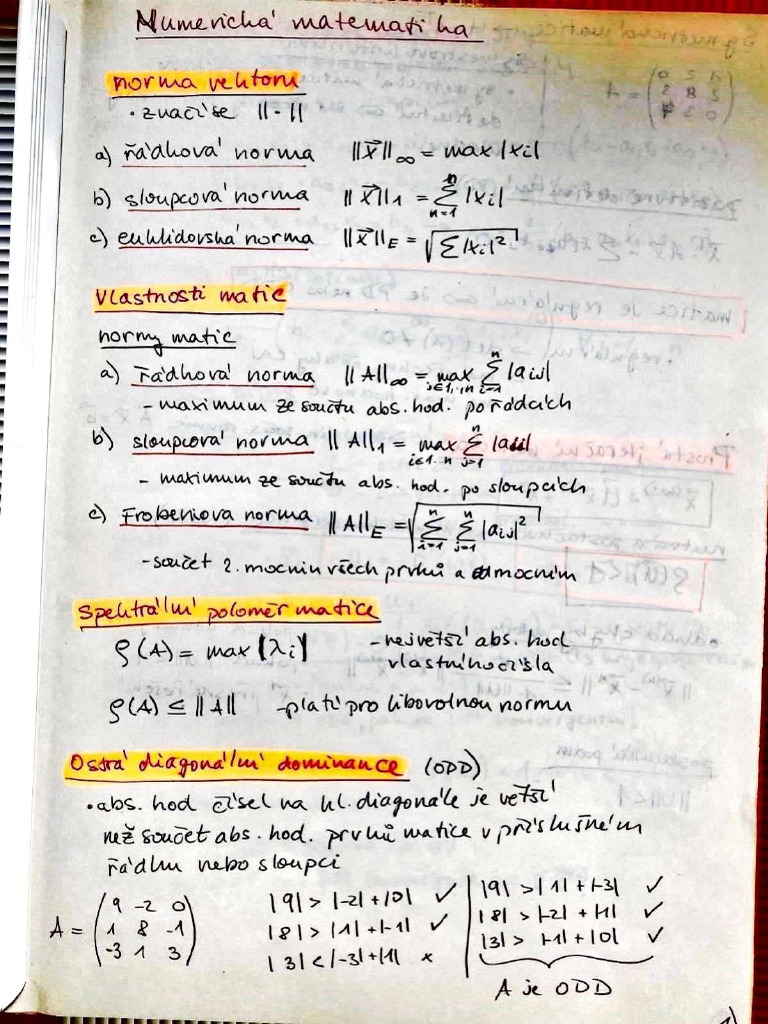 Numerická matematika
norma vektoru
• značí se ||·||
a) řádková norma ||x⃗||∞ = max |xi|
b) sloupcová norma ||x⃗||1 = Σ_{n=1}^{n} |xi|
c) euklidovská norma ||x⃗||E = √(Σ|xi|²)
Vlastnosti matic
normy matic
a) řádková norma ||A||∞ = max_{j∈1,..,n} Σ_{i=1}^{n} |aij|
- maximum ze součtu abs. hod. po řádcích
b) sloupcová norma ||A||1 = max_{i∈1..n} Σ_{j=1}^{n} |aij|
- maximum ze součtu abs. hod. po sloupcích
c) Frobeniova norma ||A||E = √(Σ_{i=1}^{n} Σ_{j=1}^{n} |aij|²)
- součet 2. mocnin všech prvků a odmocním
Spektrální poloměr matice
ρ(A) = max |λi| - největší abs. hod
vlastního čísla
ρ(A) ≤ ||A|| - platí pro libovolnou normu
Ostrá diagonální dominance (ODD)
• abs. hod čísel na hl. diagonále je větší
než součet abs. hod. prvků matice v příslušném
řádku nebo sloupci
A = (9 -2 0
1 8 -1
-3 1 3)
|9| > |-2| + |0| ✓
|8| > |1| + |-1| ✓
|3| < |-3| + |1| ×
|9| > |1| + |-3| ✓
|8| > |-2| + |1| ✓
|3| > |-1| + |0| ✓
A je ODD